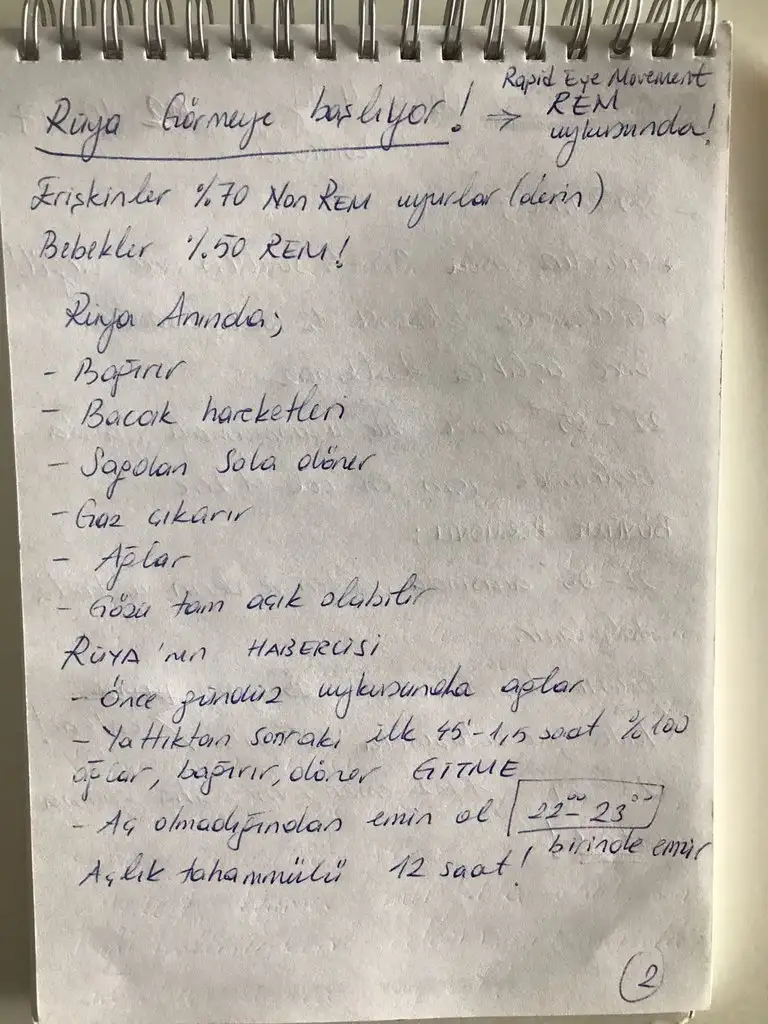 Rüya Görmeye başlıyor! ⇒ Rapid Eye Movement
REM
uykusunda!
Erişkinler %70 Non REM uyurlar (derin)
Bebekler %50 REM!
Rüya Anında;
- Bağırır
- Bacak hareketleri
- Sağdan Sola döner
- Gaz çıkarır
- Ağlar
- Gözü tam açık olabilir
RÜYA'nın HABERCİSİ
- Önce gündüz uykusunda ağlar
- Yattıktan sonraki ilk 45'-1,5 saat %100
ağlar, bağırır, döner GİTME
- Aç olmadığından emin ol 22⁰⁰- 23⁰⁰
birinde emzir
Açlık tahammülü 12 saat!
2